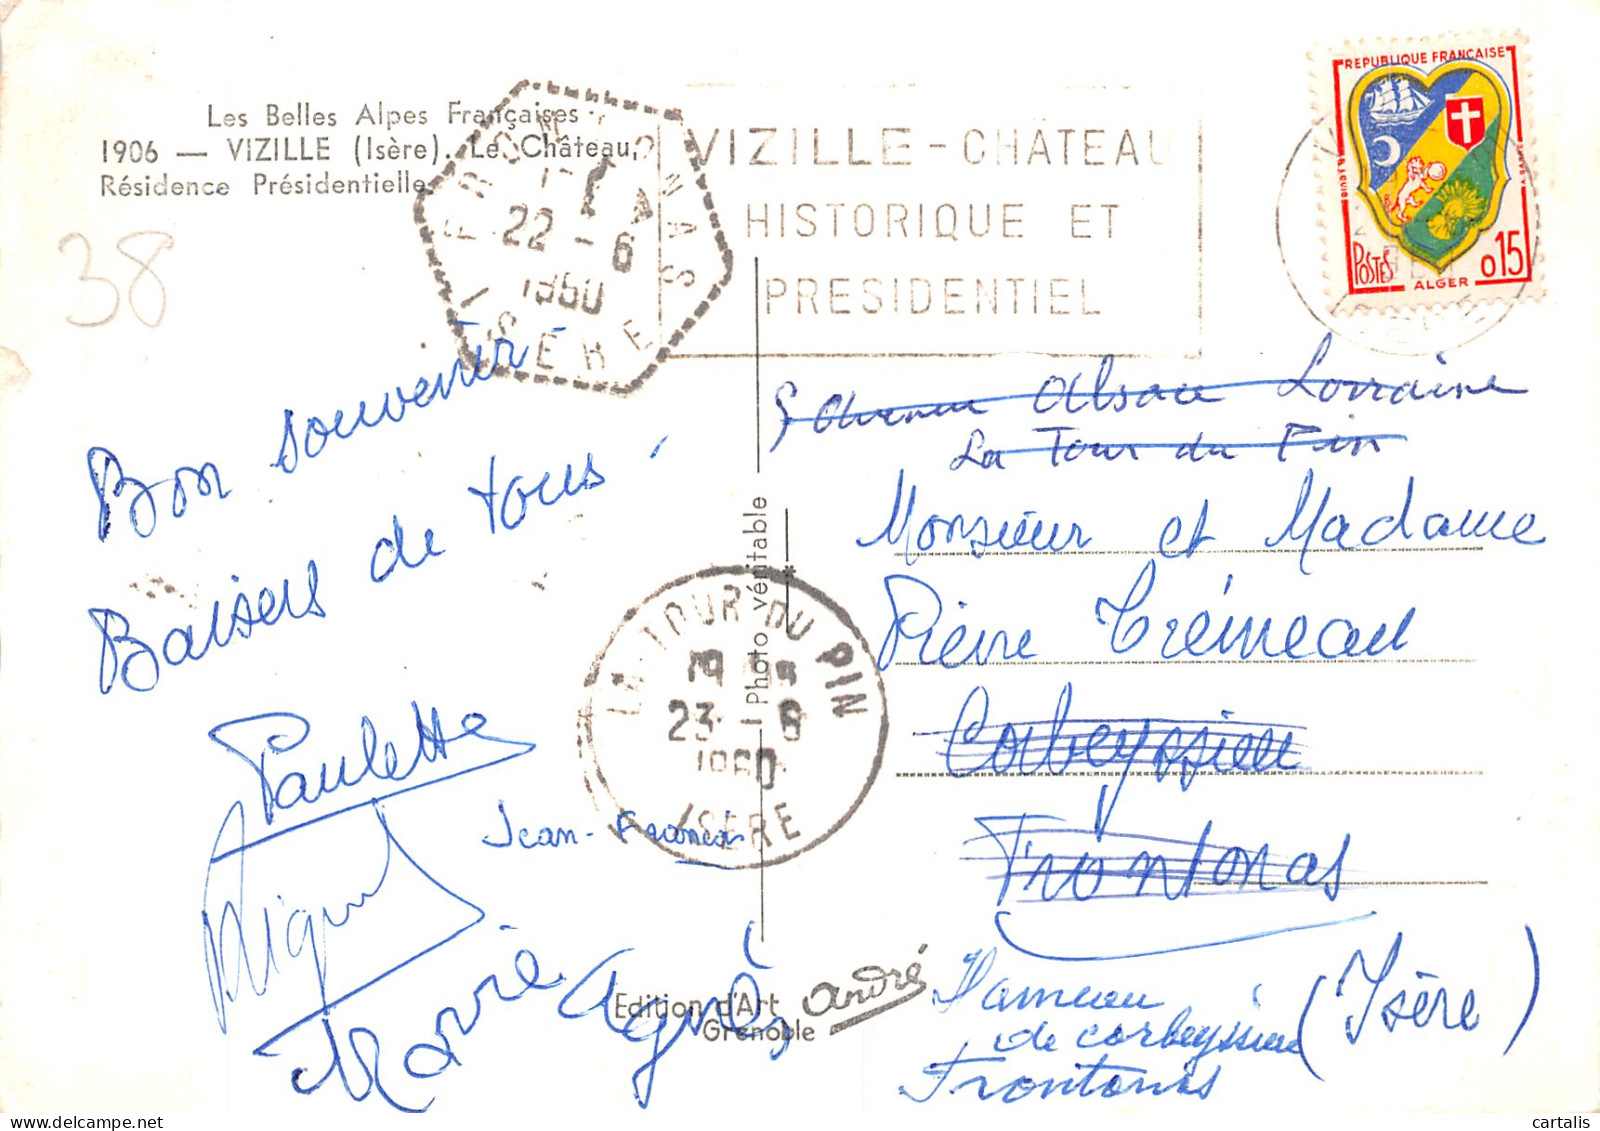 Les Belles Alpes Françaises
1906 — VIZILLE (Isère). Le Château,
Résidence Présidentielle
38
FRONTONAS
22 - 6
1960
ISÈRE
VIZILLE - CHÂTEAU
HISTORIQUE ET
PRESIDENTIEL
REPUBLIQUE FRANÇAISE
POSTES
ALGER
0,15
Bon souvenir
Baisers de tous
Paulette
Jean-François
Miguel
Marie Agnès
LA TOUR-DU-PIN
19
23 - 6
1960
ISERE
Photo véritable
Edition d'Art
André
Grenoble
Avenue Alsace Lorraine
La Tour du Pin
Monsieur et Madame
Pierre Trémeau
Corbeyssieu
Frontonas
(Isère)
Hameau
de corbeyssieu
Frontonas
cartalis
www.delcampe.net